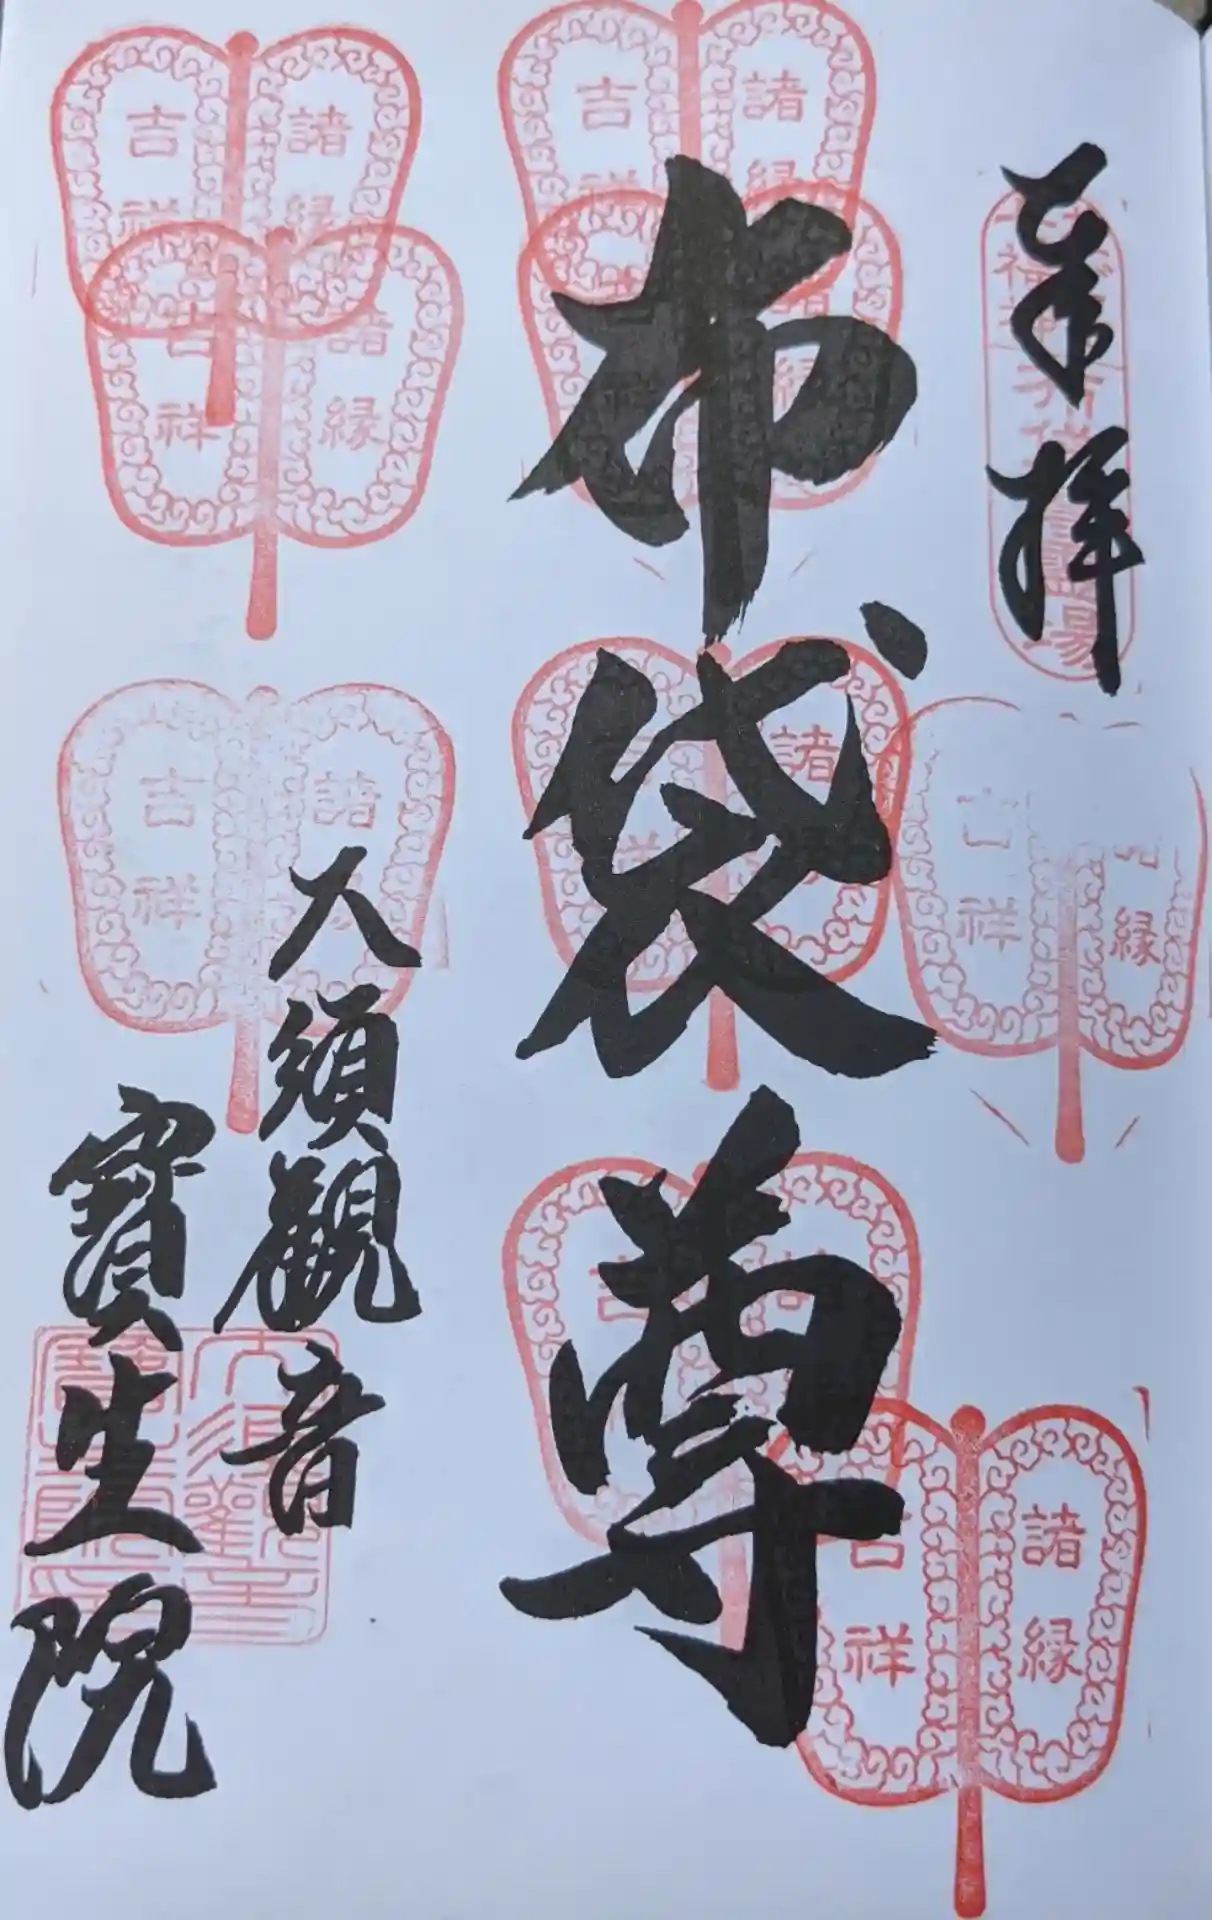 奉拝
布袋尊
大須観音
寳生院
諸縁
吉祥
諸縁
吉祥
諸縁
吉祥
諸縁
吉祥
諸縁
吉祥
諸縁
吉祥